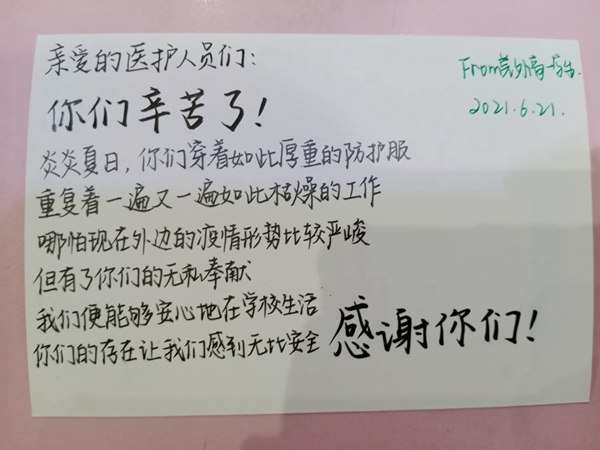 亲爱的医护人员们：
From莞外高一学生.
2021.6.21.
你们辛苦了！
炎炎夏日，你们穿着如此厚重的防护服
重复着一遍又一遍如此枯燥的工作
哪怕现在外边的疫情形势比较严峻
但有了你们的无私奉献
我们便能够安心地在学校生活
你们的存在让我们感到无比安全
感谢你们！